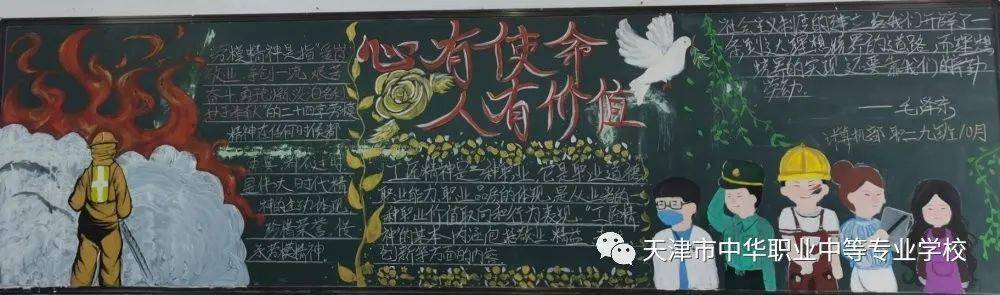 心有使命
人有价值
劳模精神是指“爱岗
敬业、争创一流,艰苦
奋斗,勇
的二十四字劳模
精神在任何时候都
伟大时代精
神的生动体现
永
精神
工匠精神是一种职业 它是职业道德
职业能力,职业品质的体现,是从业者的
一种职业价值取向和行为表现,工匠精
神的基本内涵包括敬业精益
创新等方面的内容
社会主义制度的建立给我们开辟了一
条到达理想境界的道路,而理想
境界的实现还要靠我们的辛勤
劳动
——毛泽东
计算机部 职一九四班10月
天津市中华职业中等专业学校